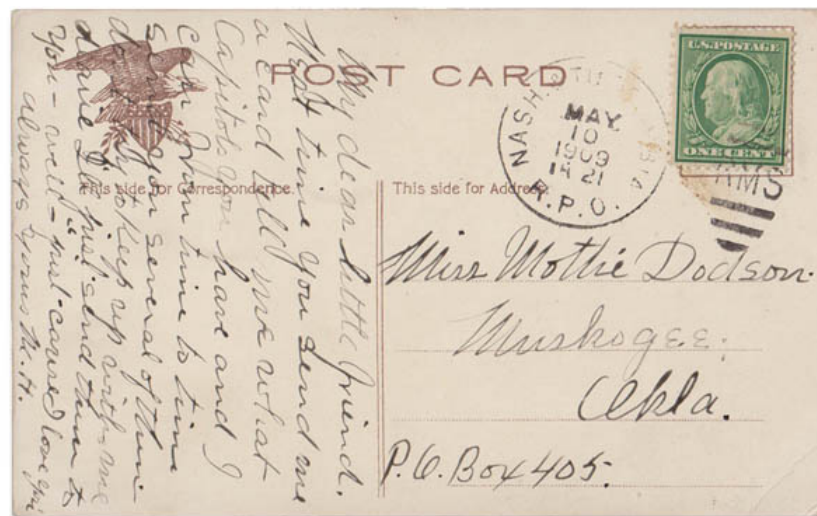 POST CARD
U.S. POSTAGE
ONE CENT
NASH.
MAY
10
1909
R.P.O.
RMS
This side for Correspondence.
This side for Address.
My dear little friend.
Next time you send me
a card tell me what
Capitols you have and I
can from time to time
send you several of them
don't try to keep up with me
dearie I'll just send them to
you - well - just-cause I love you
always yours M.H.
Miss Mottie Dodson.
Muskogee.
Okla.
P.O. Box 405.